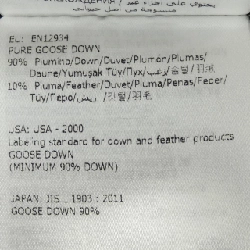 EU: EN12934
PURE GOOSE DOWN
90% Piumino/Down/Duvet/Plumón/Plumas/
Daune/Yumuşak Tüy/Пух/زغب/솜털/羽绒
10% Piuma/Feather/Duvet/Pluma/Penas/Feder/
Tüy/Перо/ريش/깃털/羽毛
USA: USA - 2000
Labeling standard for down and feather products
GOOSE DOWN
(MINIMUM 90% DOWN)
JAPAN: JIS - 1903 : 2011
GOOSE DOWN 90%